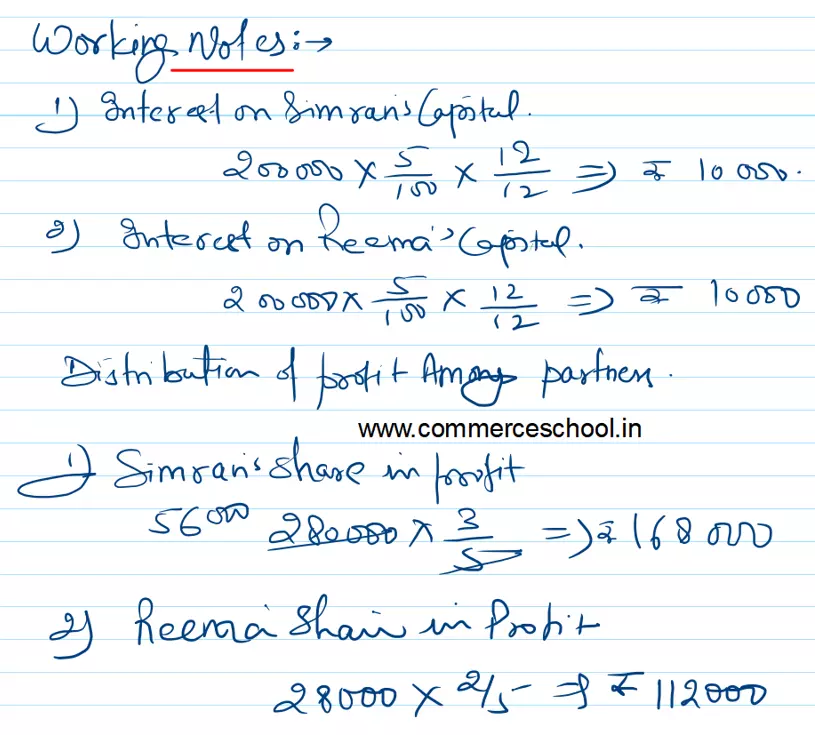 Working Notes:→
1) Interest on Simran's Capital.
200000 × 5/100 × 12/12 ⇒ ₹ 10000.
2) Interest on Reema's Capital.
200000 × 5/100 × 12/12 ⇒ ₹ 10000
Distribution of profit Among partners.
www.commerceschool.in
1) Simran's share in profit
56000 280000 × 3/5 ⇒ ₹ 168000
2) Reema Share in Profit
28000 × 2/5 ⇒ ₹ 112000